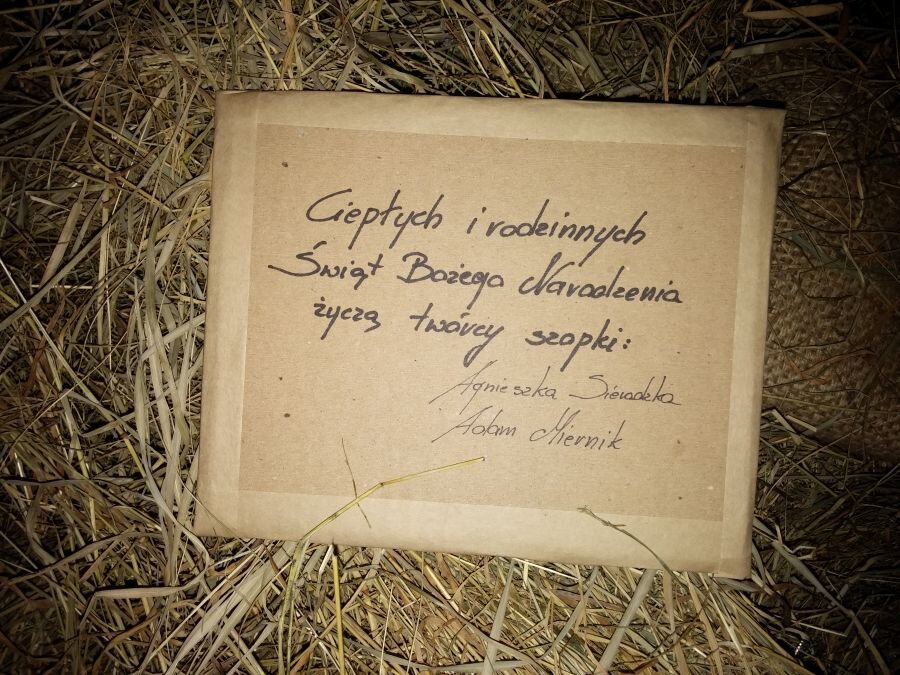 Ciepłych i rodzinnych
Świąt Bożego Narodzenia
życzą twórcy szopki:
Agnieszka Sieradzka
Adam Miernik